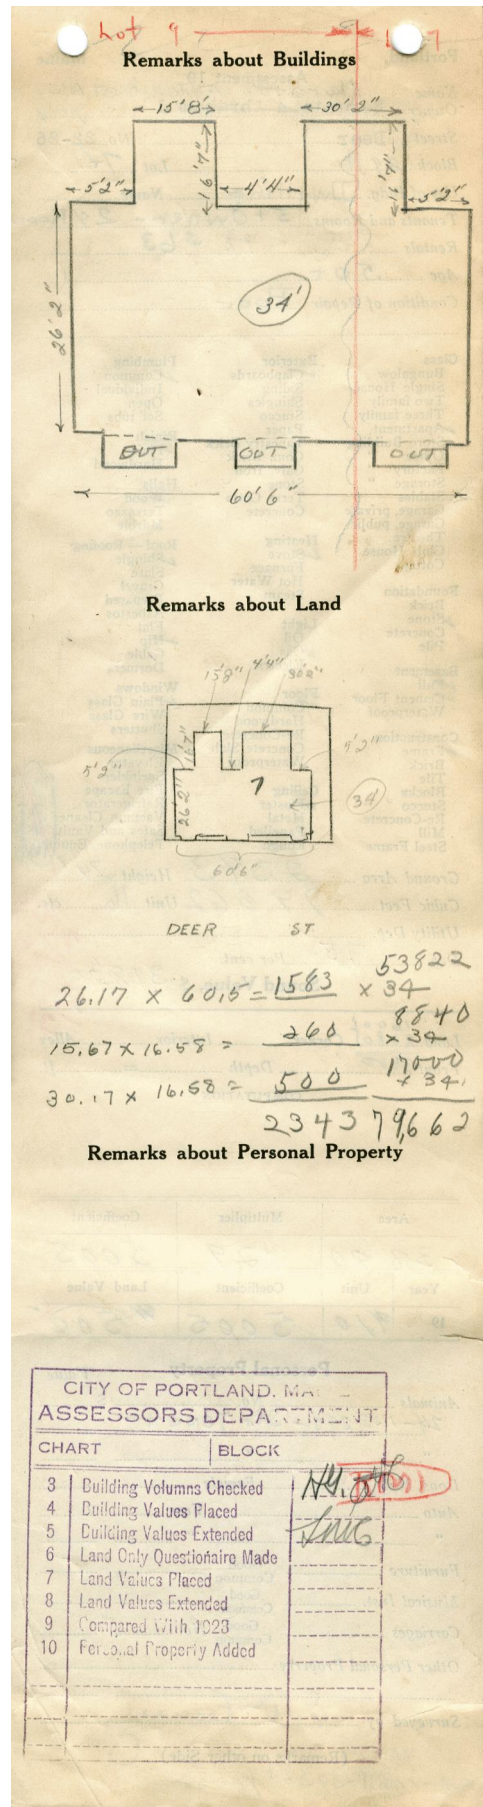 Lot 9
7
Remarks about Buildings
15'8"
30'2"
16'7"
5'2"
4'4"
5'2"
26'2"
34'
OUT
OUT
OUT
60'6"
Remarks about Land
15'8"
4'4"
30'2"
16'7"
5'2"
5'2"
7
26'2"
34
60'6"
DEER ST
53822
26.17 x 60.5 = 1583 x 34
8840
15.67 x 16.58 = 260 x 34
17000
30.17 x 16.58 = 500 x 34
2343 79,662
Remarks about Personal Property
CITY OF PORTLAND, MAINE
ASSESSORS DEPARTMENT
CHART BLOCK
3 Building Volumns Checked
4 Building Values Placed
5 Building Values Extended
6 Land Only Questionaire Made
7 Land Values Placed
8 Land Values Extended
9 Compared With 1923
10 Personal Property Added